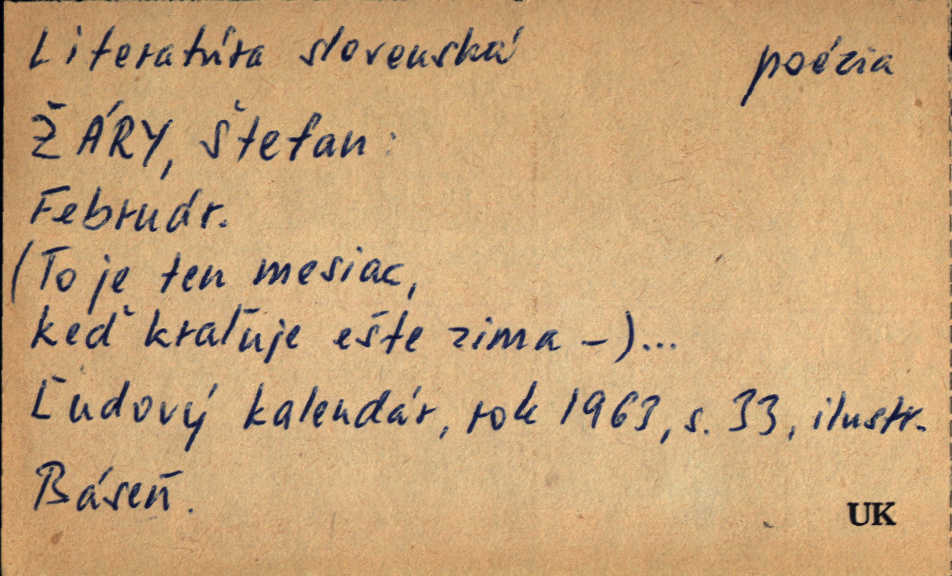 Literatúra slovenská poézia
ŽÁRY, Štefan:
Február.
(To je ten mesiac,
keď kraľuje ešte zima –)...
Ľudový kalendár, rok 1963, s. 33, ilustr.
Báseň.
UK